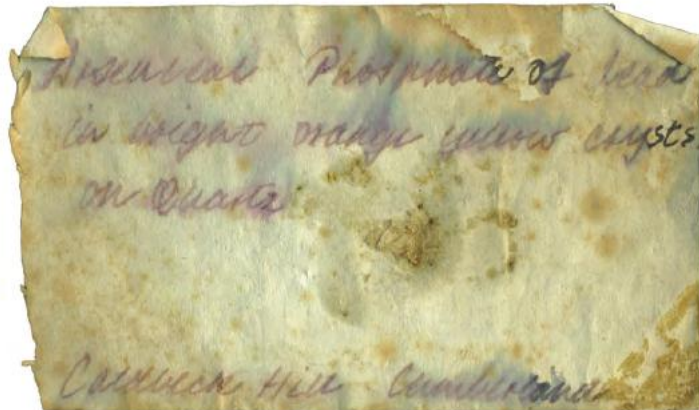 Arsenical Phosphate of lead
in bright orange yellow cryst⁠s
on Quartz
Caldbeck Hill Cumberland